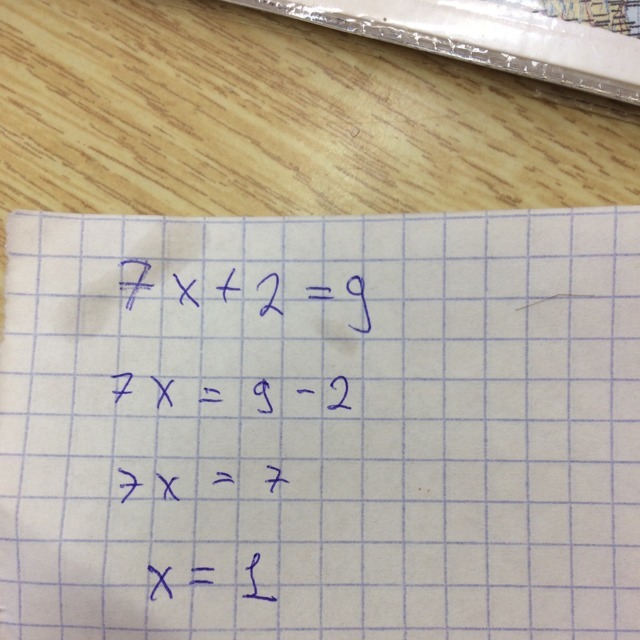 7x+2=9
7x=9-2
7x=7
x=1